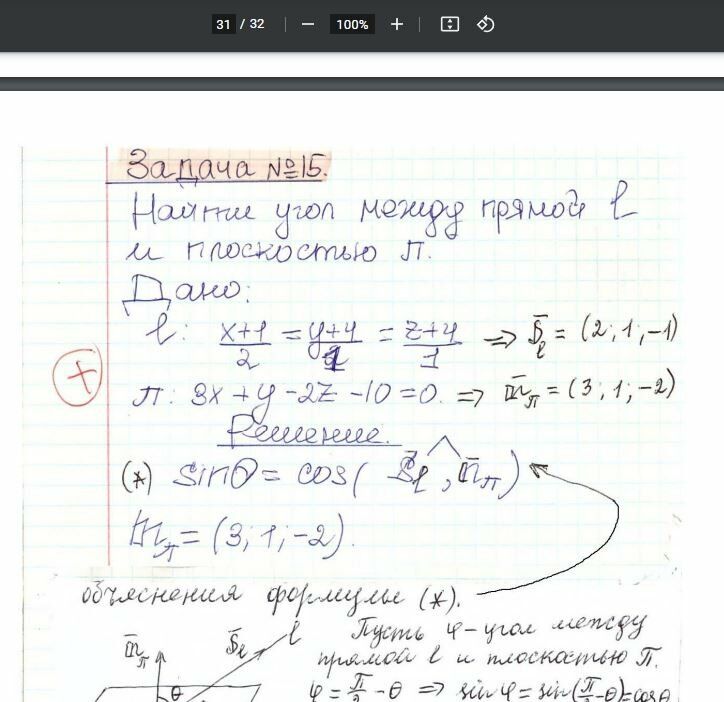 31 / 32
100%
Задача №15.
Найти угол между прямой l
и плоскостью π.
Дано:
l: x+1/2 = y+4/1 = z+4/1 => S̄l = (2; 1; -1)
π: 3x+y-2z-10=0. => n̄π = (3; 1; -2)
Решение.
(*) sinθ = cos( S̄l , n̄π )
n̄π = (3; 1; -2).
объяснения формулы (*).
n̄π S̄l l Пусть φ-угол между
прямой l и плоскостью π.
θ φ = π/2 - θ => sin φ = sin(π/2-θ)=cosθ